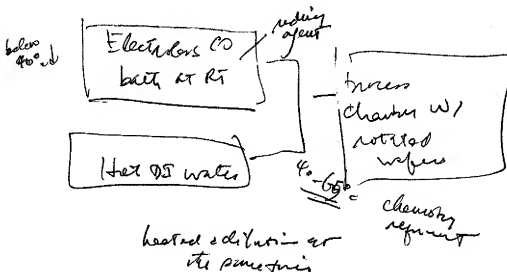 below
40°
Electroless Co
bath at RT
reducing
agent
Hot DI water
process
chamber w/
rotated
wafers
40-65°C
chemistry
heated & dilution at
the same time